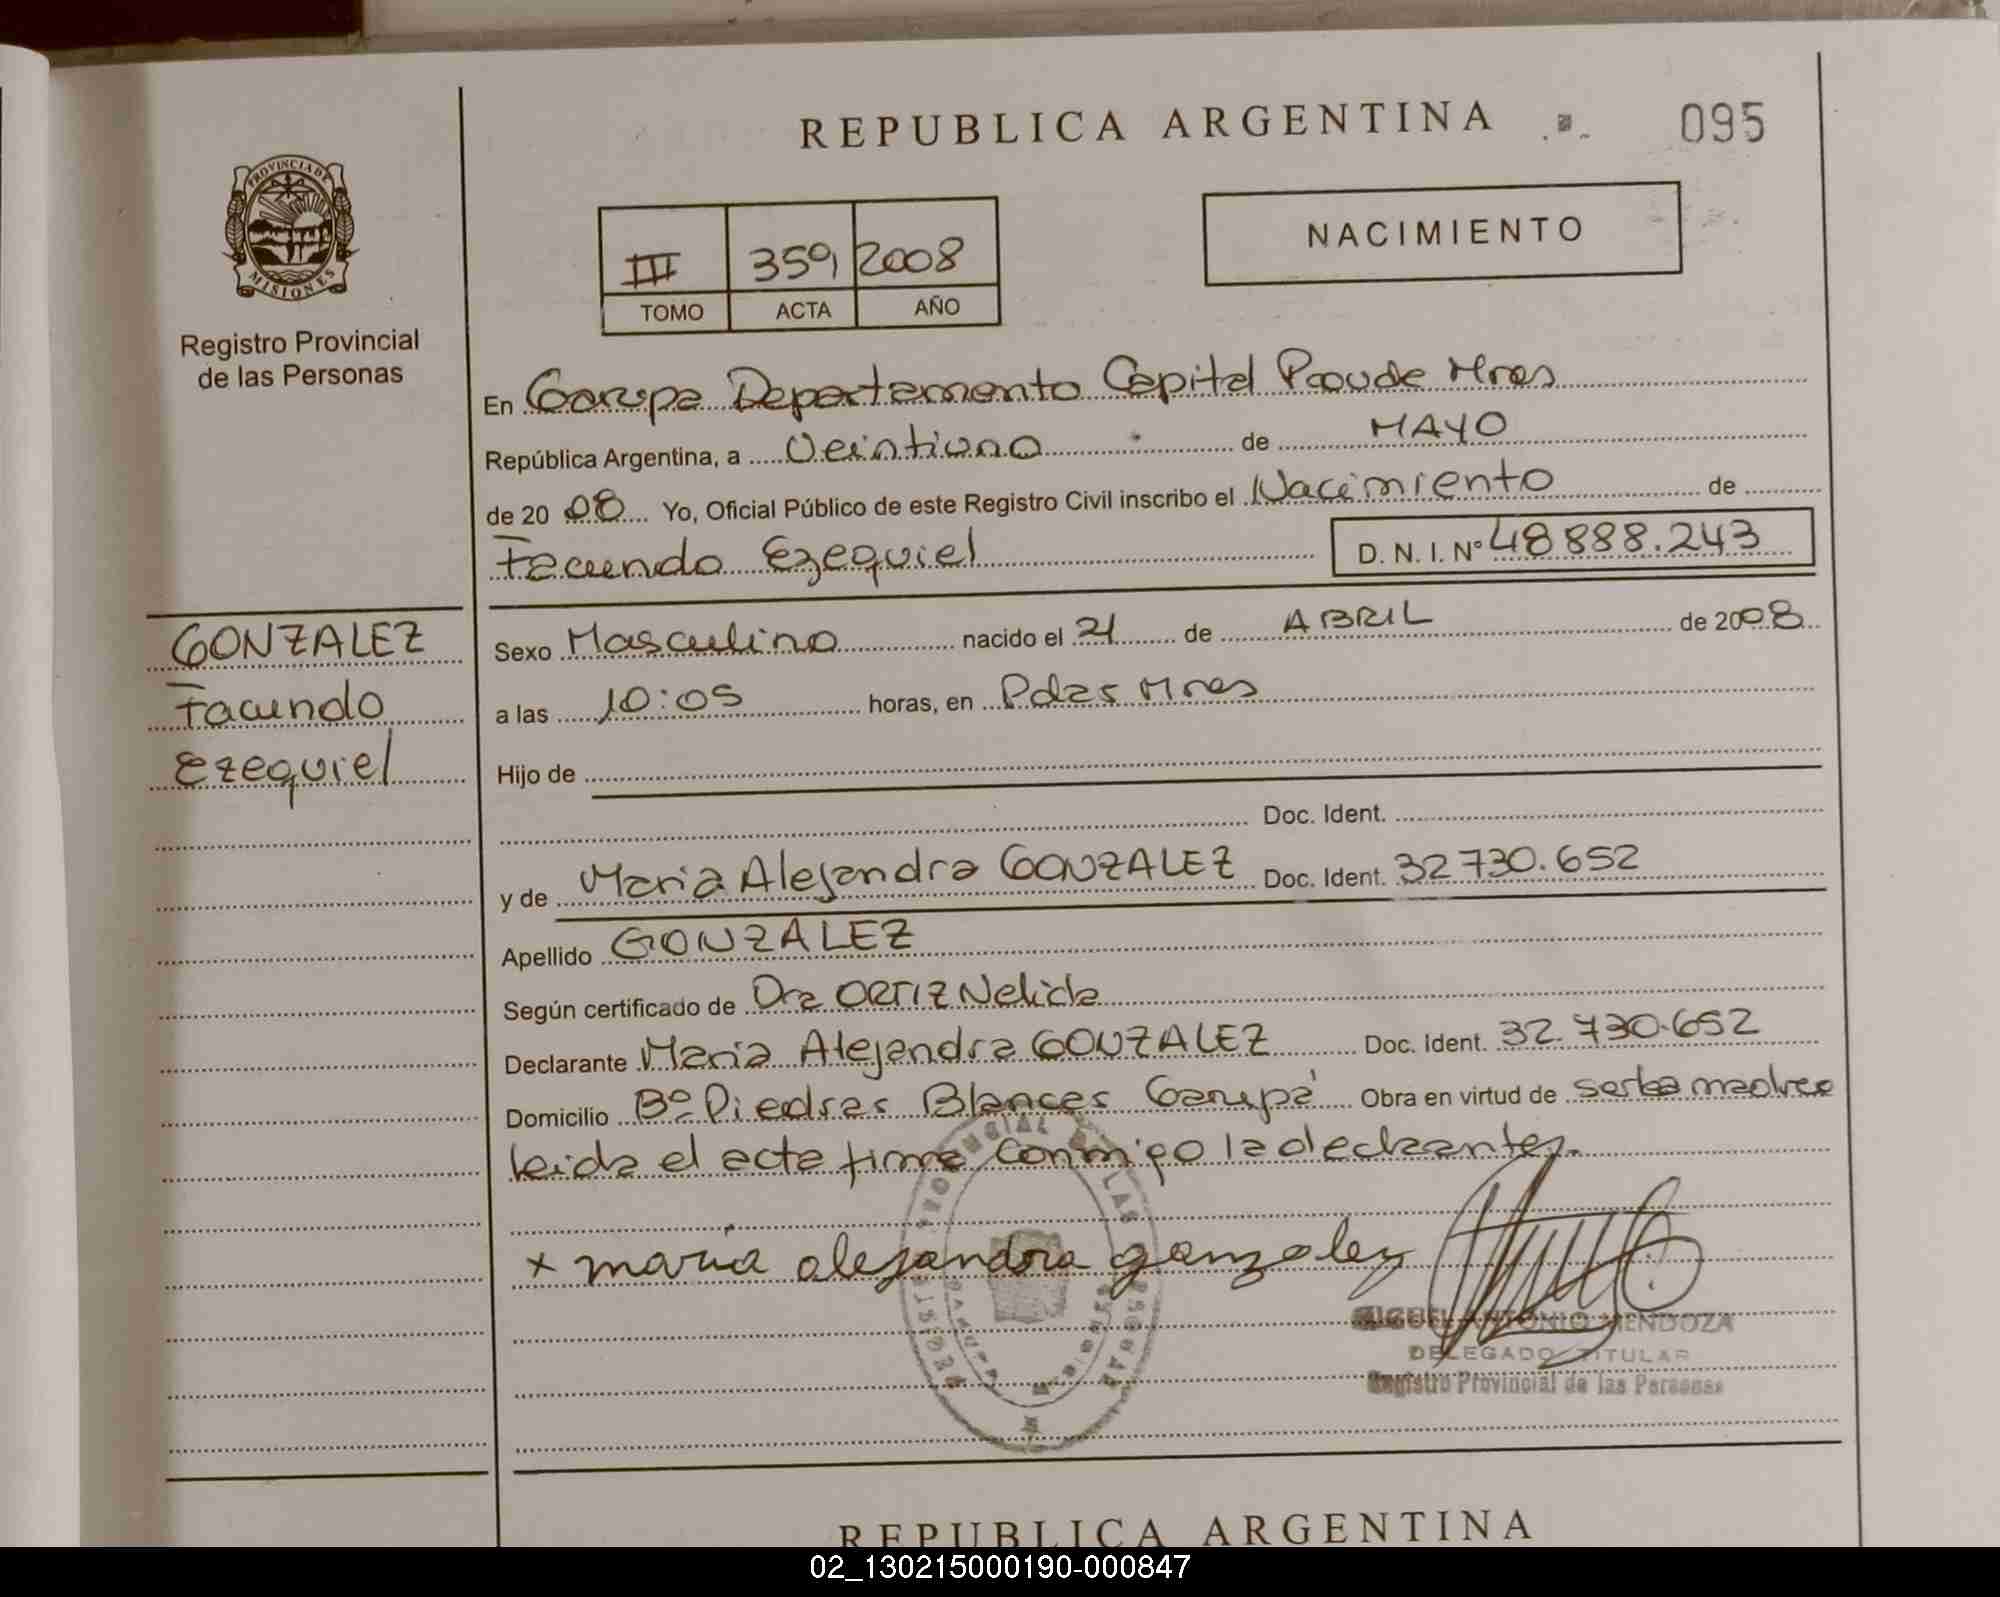 REPUBLICA ARGENTINA
095
PROVINCIA DE
MISIONES
Registro Provincial
de las Personas
III 359 2008
TOMO ACTA AÑO
NACIMIENTO
En Garupa Departamento Capital Pcoude Mnes
República Argentina, a Veintiuno de MAYO
de 2008 Yo, Oficial Público de este Registro Civil inscribo el Nacimiento de
Facundo Ezequiel D. N. I. Nº 48888.243
GONZALEZ
Facundo
Ezequiel
Sexo Masculino nacido el 21 de ABRIL de 2008
a las 10:05 horas, en Pdas Mnes
Hijo de
Doc. Ident.
y de Maria Alejandra GONZALEZ Doc. Ident. 32730.652
Apellido GONZALEZ
Según certificado de Dra ORTIZ Nelida
Declarante Maria Alejandra GONZALEZ Doc. Ident. 32.730.652
Domicilio Bº Piedras Blancas Garupá Obra en virtud de ser la madre
leida el acta firma conmigo la declarante.
x maria alejandra gonzalez
MIGUEL ANTONIO MENDOZA
DELEGADO TITULAR
Registro Provincial de las Personas
REPUBLICA ARGENTINA
02_130215000190-000847